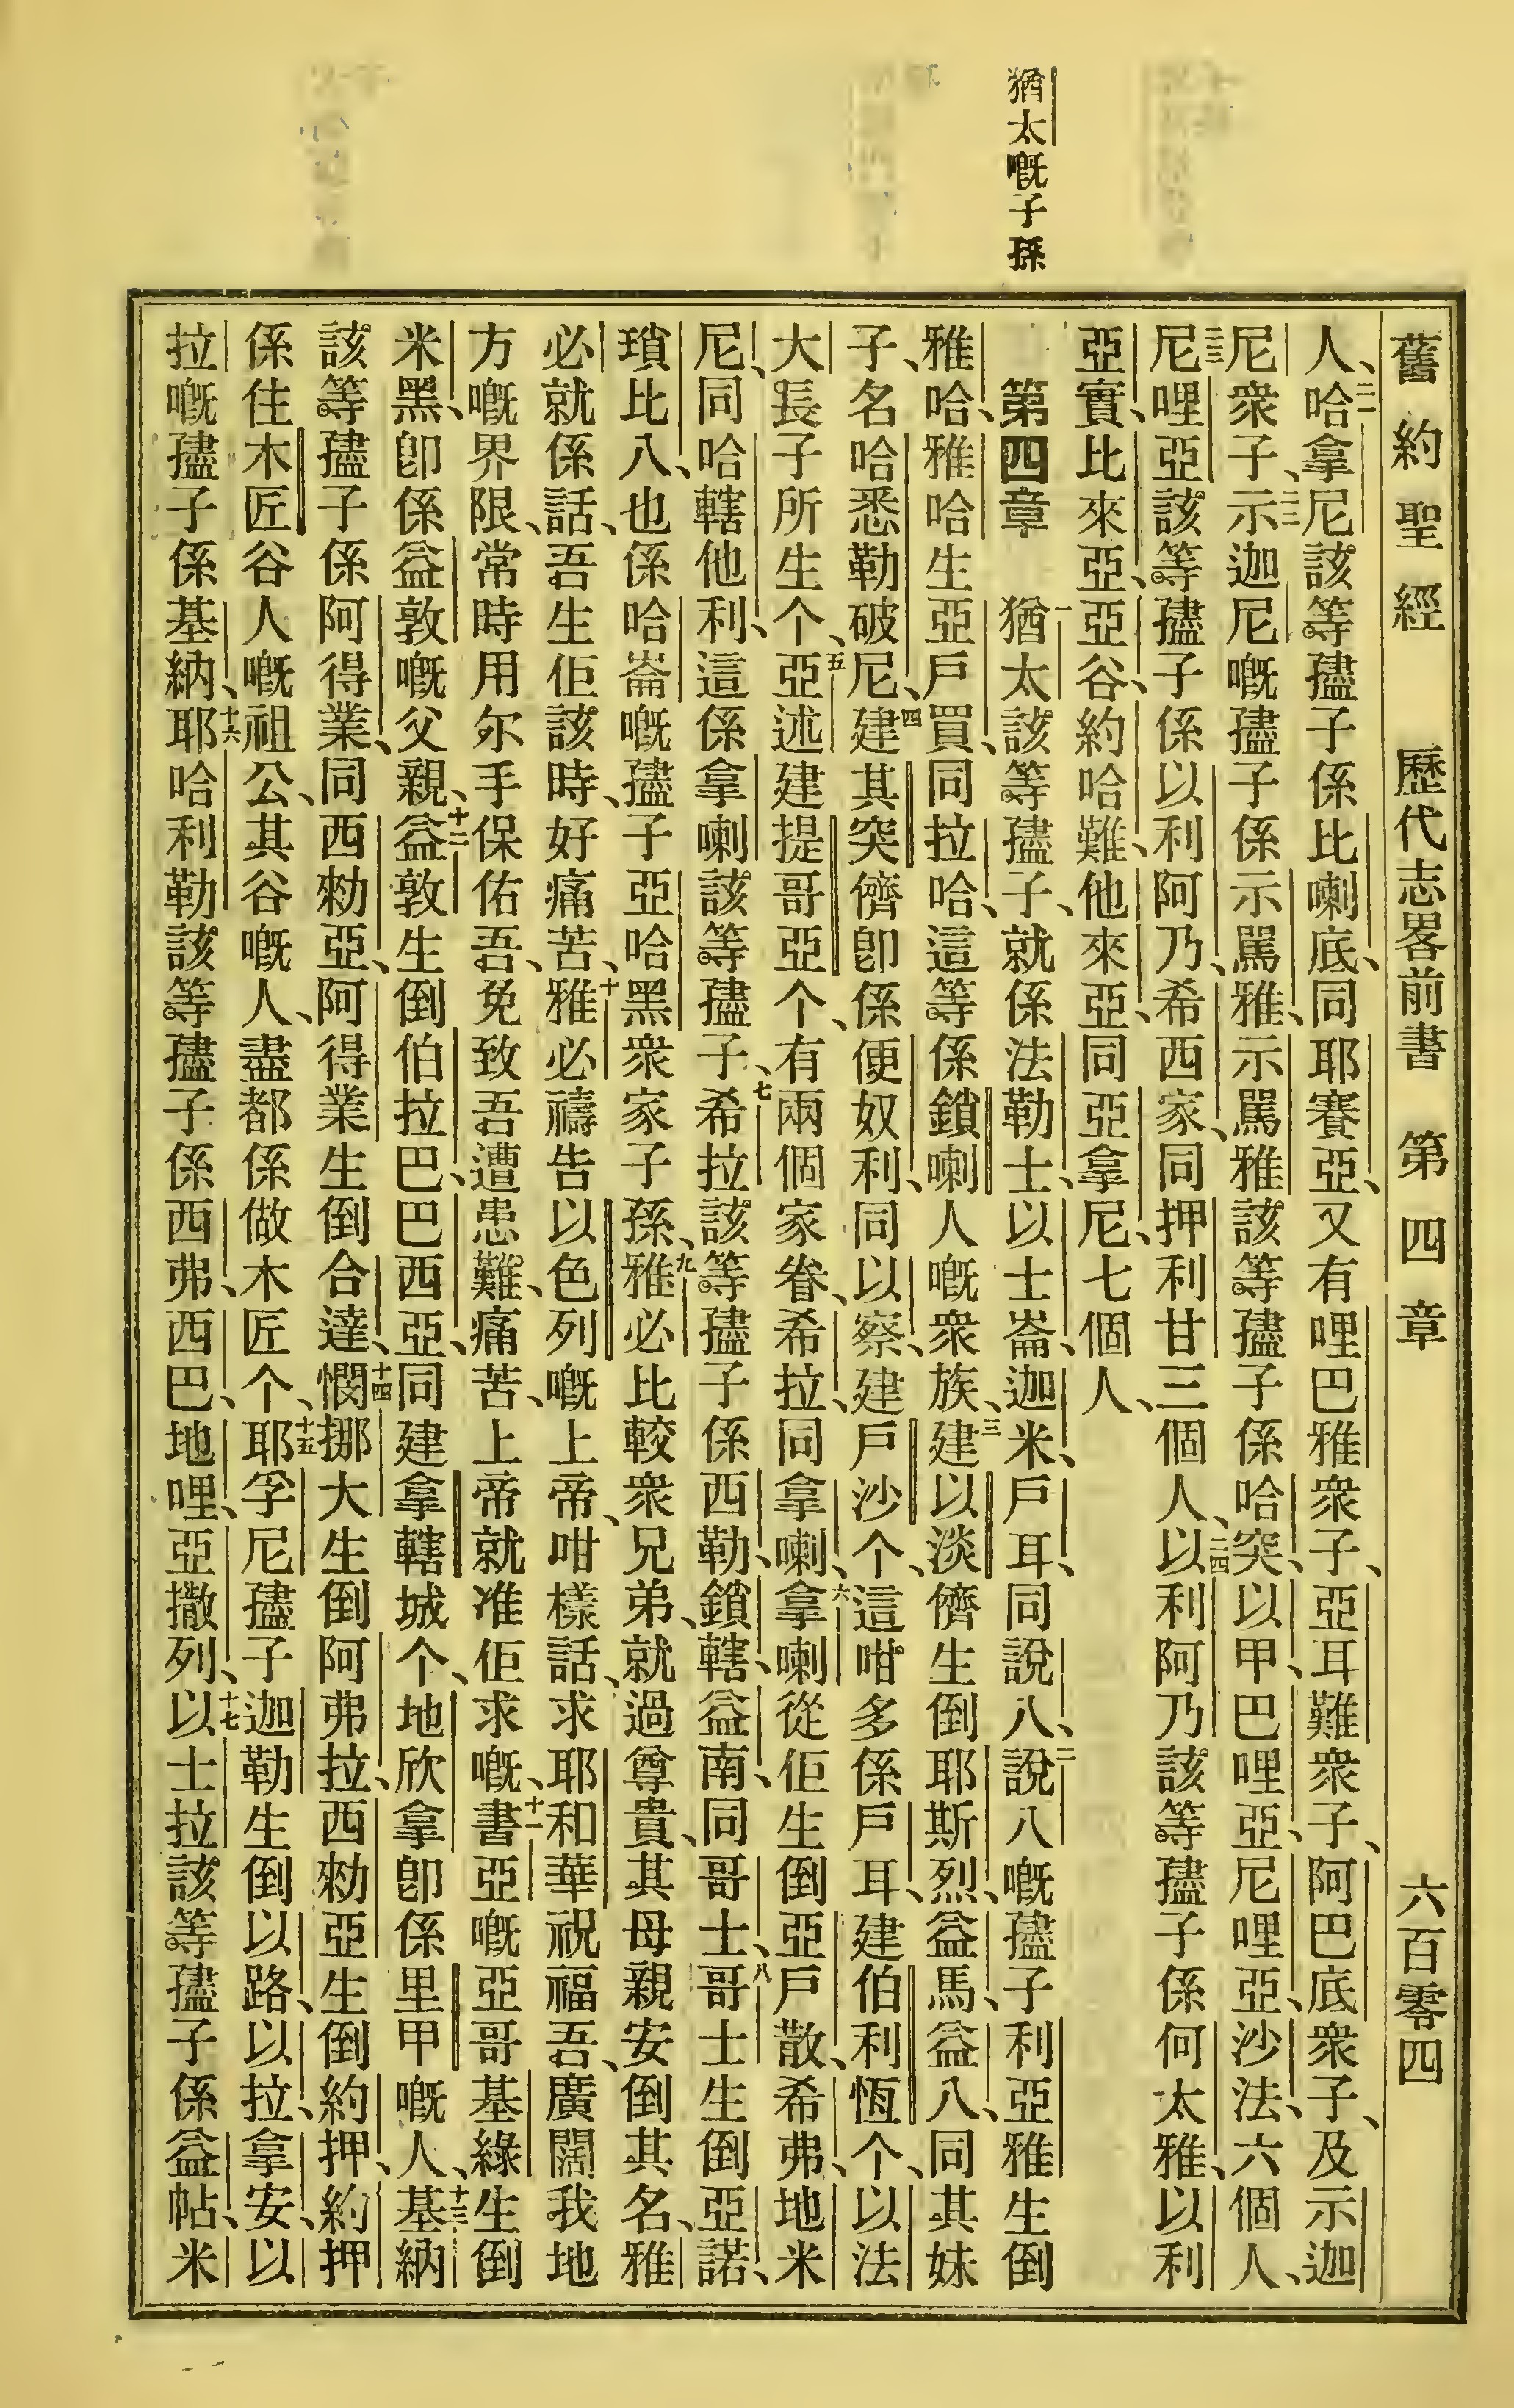 舊約聖經 歷代志畧前書 第四章 六百零四
人、二一哈拿尼該等孻子係比喇底、同耶賽亞、又有哩巴雅衆子、亞耳難衆子、阿巴底衆子、及示迦
尼衆子、二二示迦尼嘅孻子係示罵雅、示罵雅該等孻子係哈突、以甲、巴哩亞、尼哩亞、沙法、六個人、
二三尼哩亞該等孻子係以利阿乃、希西家、同押利甘三個人、二四以利阿乃該等孻子係何太雅、以利
亞實、比來亞、亞谷、約哈難、他來亞、同亞拿尼、七個人、
猶太嘅子孫
第四章 一猶太該等孻子、就係法勒士、以士崙、迦米、戶耳、同說八、二說八嘅孻子利亞雅生倒
雅哈、雅哈生亞戶買、同拉哈、這等係鎖喇人嘅衆族、三建以淡儕生倒耶斯烈、益馬、益八、同其妹
子、名哈悉勒破尼、四建其突儕卽係便奴利、同以察、建戶沙个、這咁多係戶耳、建伯利恆个、以法
大長子所生个、五亞述建提哥亞个、有兩個家眷、希拉、同拿喇、六拿喇從佢生倒亞戶散、希弗、地米
尼、同哈轄他利、這係拿喇該等孻子、七希拉該等孻子係西勒、鎖轄、益南、同哥士、八哥士生倒亞諾、
瑣比八、也係哈崙嘅孻子亞哈黑衆家子孫、九雅必比較衆兄弟、就過尊貴、其母親安倒其名、雅
必就係話、吾生佢該時、好痛苦、十雅必禱告以色列嘅上帝、咁樣話、求耶和華祝福吾、廣闊我地
方嘅界限、常時用尔手保佑吾、免致吾遭患難、痛苦、上帝就准佢求嘅、十一書亞嘅亞哥基綠生倒
米黑、卽係益敦嘅父親、十二益敦生倒伯拉巴、巴西亞、同建拿轄城个、地欣拿卽係里甲嘅人、十三基納
該等孻子係阿得業、同西勑亞、阿得業生倒合達、十四憫挪大生倒阿弗拉、西勑亞生倒約押、約押
係住木匠谷人嘅祖公、其谷嘅人、盡都係做木匠个、十五耶孚尼孻子迦勒生倒以路、以拉、拿安、以
拉嘅孻子係基納、十六耶哈利勒該等孻子係西弗、西巴、地哩、亞撒列、十七以士拉該等孻子係益帖、米